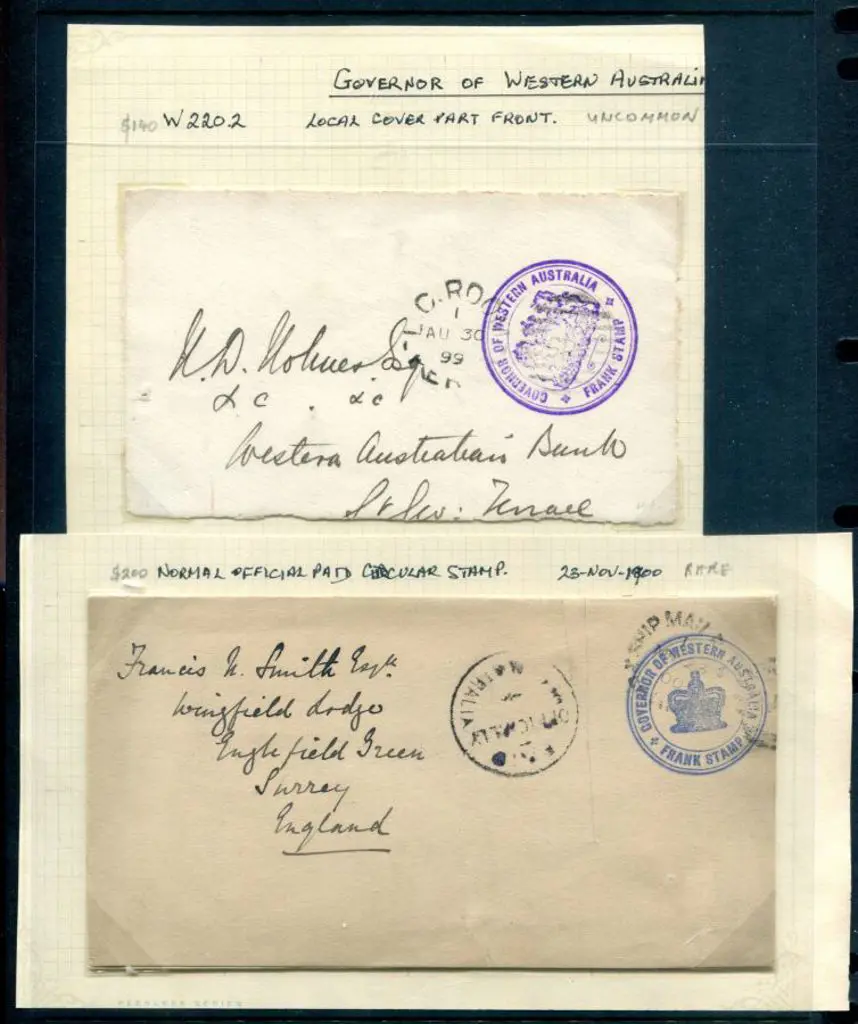 GOVERNOR OF WESTERN AUSTRALIA
$140 W220.2 LOCAL COVER PART FRONT. UNCOMMON
GOVERNOR OF WESTERN AUSTRALIA
FRANK STAMP
1
AU 30
99
Esq
&c. &c
Western Australian Bank
St Geo: Terrace
$200 NORMAL OFFICIAL PAID CIRCULAR STAMP. 23-NOV-1900 RARE
SHIP MAIL
GOVERNOR OF WESTERN AUSTRALIA
FRANK STAMP
OFFICIALLY
Francis N. Smith Esqre
Wingfield Lodge
Englefield Green
Surrey
England